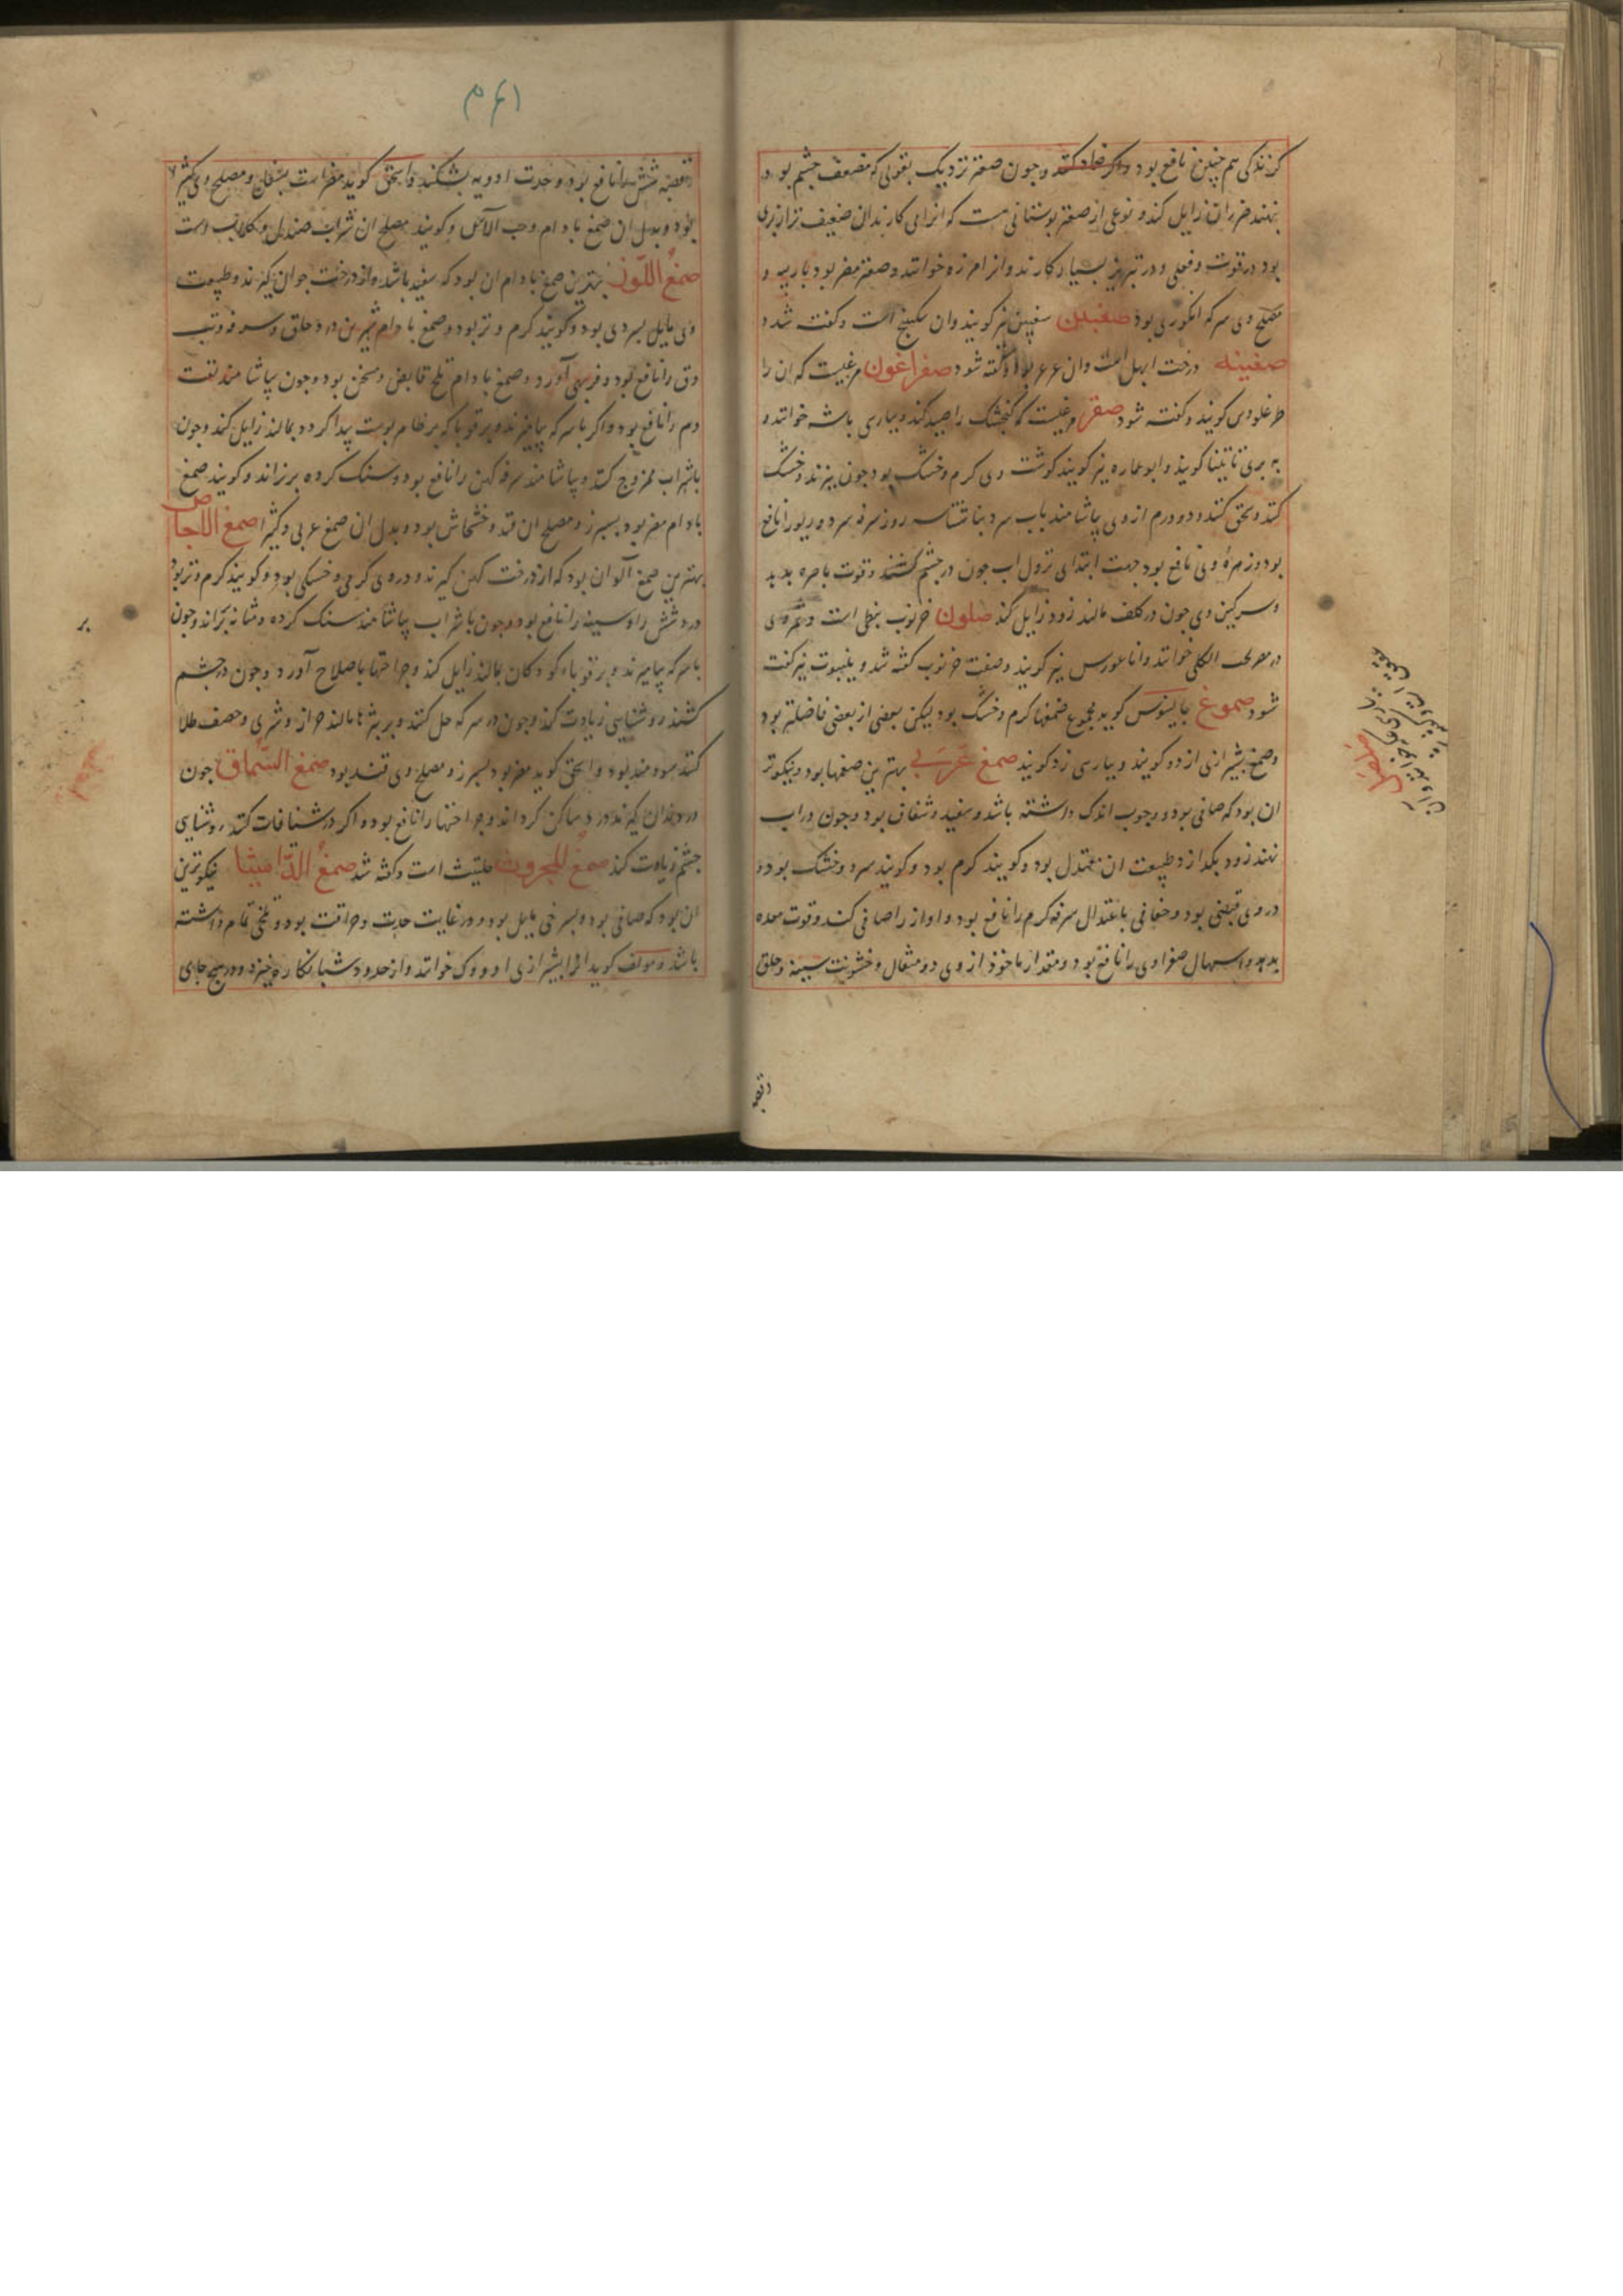 کزندکی هم چنین نافع بود و اکر ضماد کنند و چون صعتر نزدیک بقولی که مضعف چشم بود
بنهند ضرر ان زایل کند و نوعی از صعتر بوستانی هست که انرا می کارند ان ضعیف تر از بری
بود در قوت و فعل و در تبریز بسیار کارند و انرا مرزه خوانند و صعتر مضر بود باریه و
مصلح وی سرکه انکوری بود صغبین سغبین نیز کویند وان سکبینج است و کفت شد
صفینه درخت ابهل است وان عرعر بود و کفته شود صفراغون مرغیست که ان را
طرغلودی کویند و کفته شود صقر مرغیست که کنجشک را صید کند و بپارسی باشه خوانند و
به بری تاتینا کویند و ابو عماره نیز کویند کوشت وی کرم و خشک بود چون بپزند و خشک
کنند و سحق کنند و دو درم از وی بیاشامند باب سرد بناشتا سه روز سرفه سرد و ربو را نافع
بود و زهرهٔ وی نافع بود جهت ابتدای نزول اب چون در چشم کشند و قوت باصره بدهد
و سرکین وی چون در کلف مالند زود زایل کند صلون خرنوب نبطی است و ثمر وی
خوانند و اناغورس نیز کویند و صفت خرنوب کفته شد و ینبوت نیز کفت
شود صموغ جالینوس کوید مجموع صمغها کرم و خشک بود لیکن بعضی از بعضی فاضلتر بود
وصمغ بشیرازی ازدو کویند و بپارسی زد کویند صمغ عربی بهترین صمغها بود و نیکوتر
ان بود که صافی بود و چوب اندک داشته باشد و سفید و شفاف بود و چون در اب
نهند زود بکدازد و طبیعت ان معتدل بود و کویند کرم بود و کویند سرد و خشک بود و
در وی قبضی بود و جفافی باعتدال سرفه کرم را نافع بود و اواز را صافی کند و قوت معده
بدهد و اسهال صفراوی را نافع بود و مقدار ماخوذ از وی دو مثقال و خشونت سینه و حلق
وقصبه
وقصبه شش را نافع بود و حدت ادویه بشکند و اسحق کوید مضر است بسفل و مصلح وی کثیرا
بود و بدل ان صمغ بادام و حب الآس و کویند مصلح ان شراب صندل و کلاب است
صمغ اللوز بهترین صمغ بادام ان بود که سفید باشد و از درخت جوان کیرند و طبیعت
وی مایل بسردی بود و کویند کرم و تر بود و صمغ بادام شیرین درد حلق و سرفه و تب
دق را نافع بود و فربهی آورد و صمغ بادام تلخ قابض و مسخن بود و چون بیاشامند نفث
دم را نافع بود و اکر با سرکه بیامیزند و بر قوبا که بر ظاهر پوست پیدا کردد بمالند زایل کند و چون
باشراب ممزوج کنند و بیاشامند سرفه کهن را نافع بود و سنک کرده بریزاند و کویند صمغ
بادام مضر بود بسپرز و مصلح ان قند و خشخاش بود و بدل ان صمغ عربی و کثیرا صمغ الاجاص
بهترین صمغ آلو ان بود که از درخت کهن کیرند و در وی کرمی و خشکی بود و کویند کرم و تر بود
درد شش را و سینه را نافع بود و چون باشراب بیاشامند سنک کرده و مثانه بریزاند و چون
باسرکه بیامیزند و بر قوباء کودکان بمالند زایل کند و جراحتها باصلاح آورد و چون در چشم
کشند روشنایی زیادت کند و چون در سرکه حل کنند و بر بثرها مالند حزاز و شری و حصف طلا
کنند سودمند بود و اسحق کوید مضر بود بسپرز و مصلح وی قند بود صمغ السماق چون
در دندان کیرند درد ساکن کرداند و جراحتها را نافع بود و اکر در شیافات کنند روشنایی
چشم زیادت کند صمغ المحروث حلتیث است و کفته شد صمغ الدامیثا نیکوترین
ان بود که صافی بود و بسرخی مایل بود و در غایت حدت و حراقت بود و تلخی تمام داشته
باشد و مولف کوید انرا بشیرازی خوانند و از حدود شبانکاره خیزد و در هیچ جای